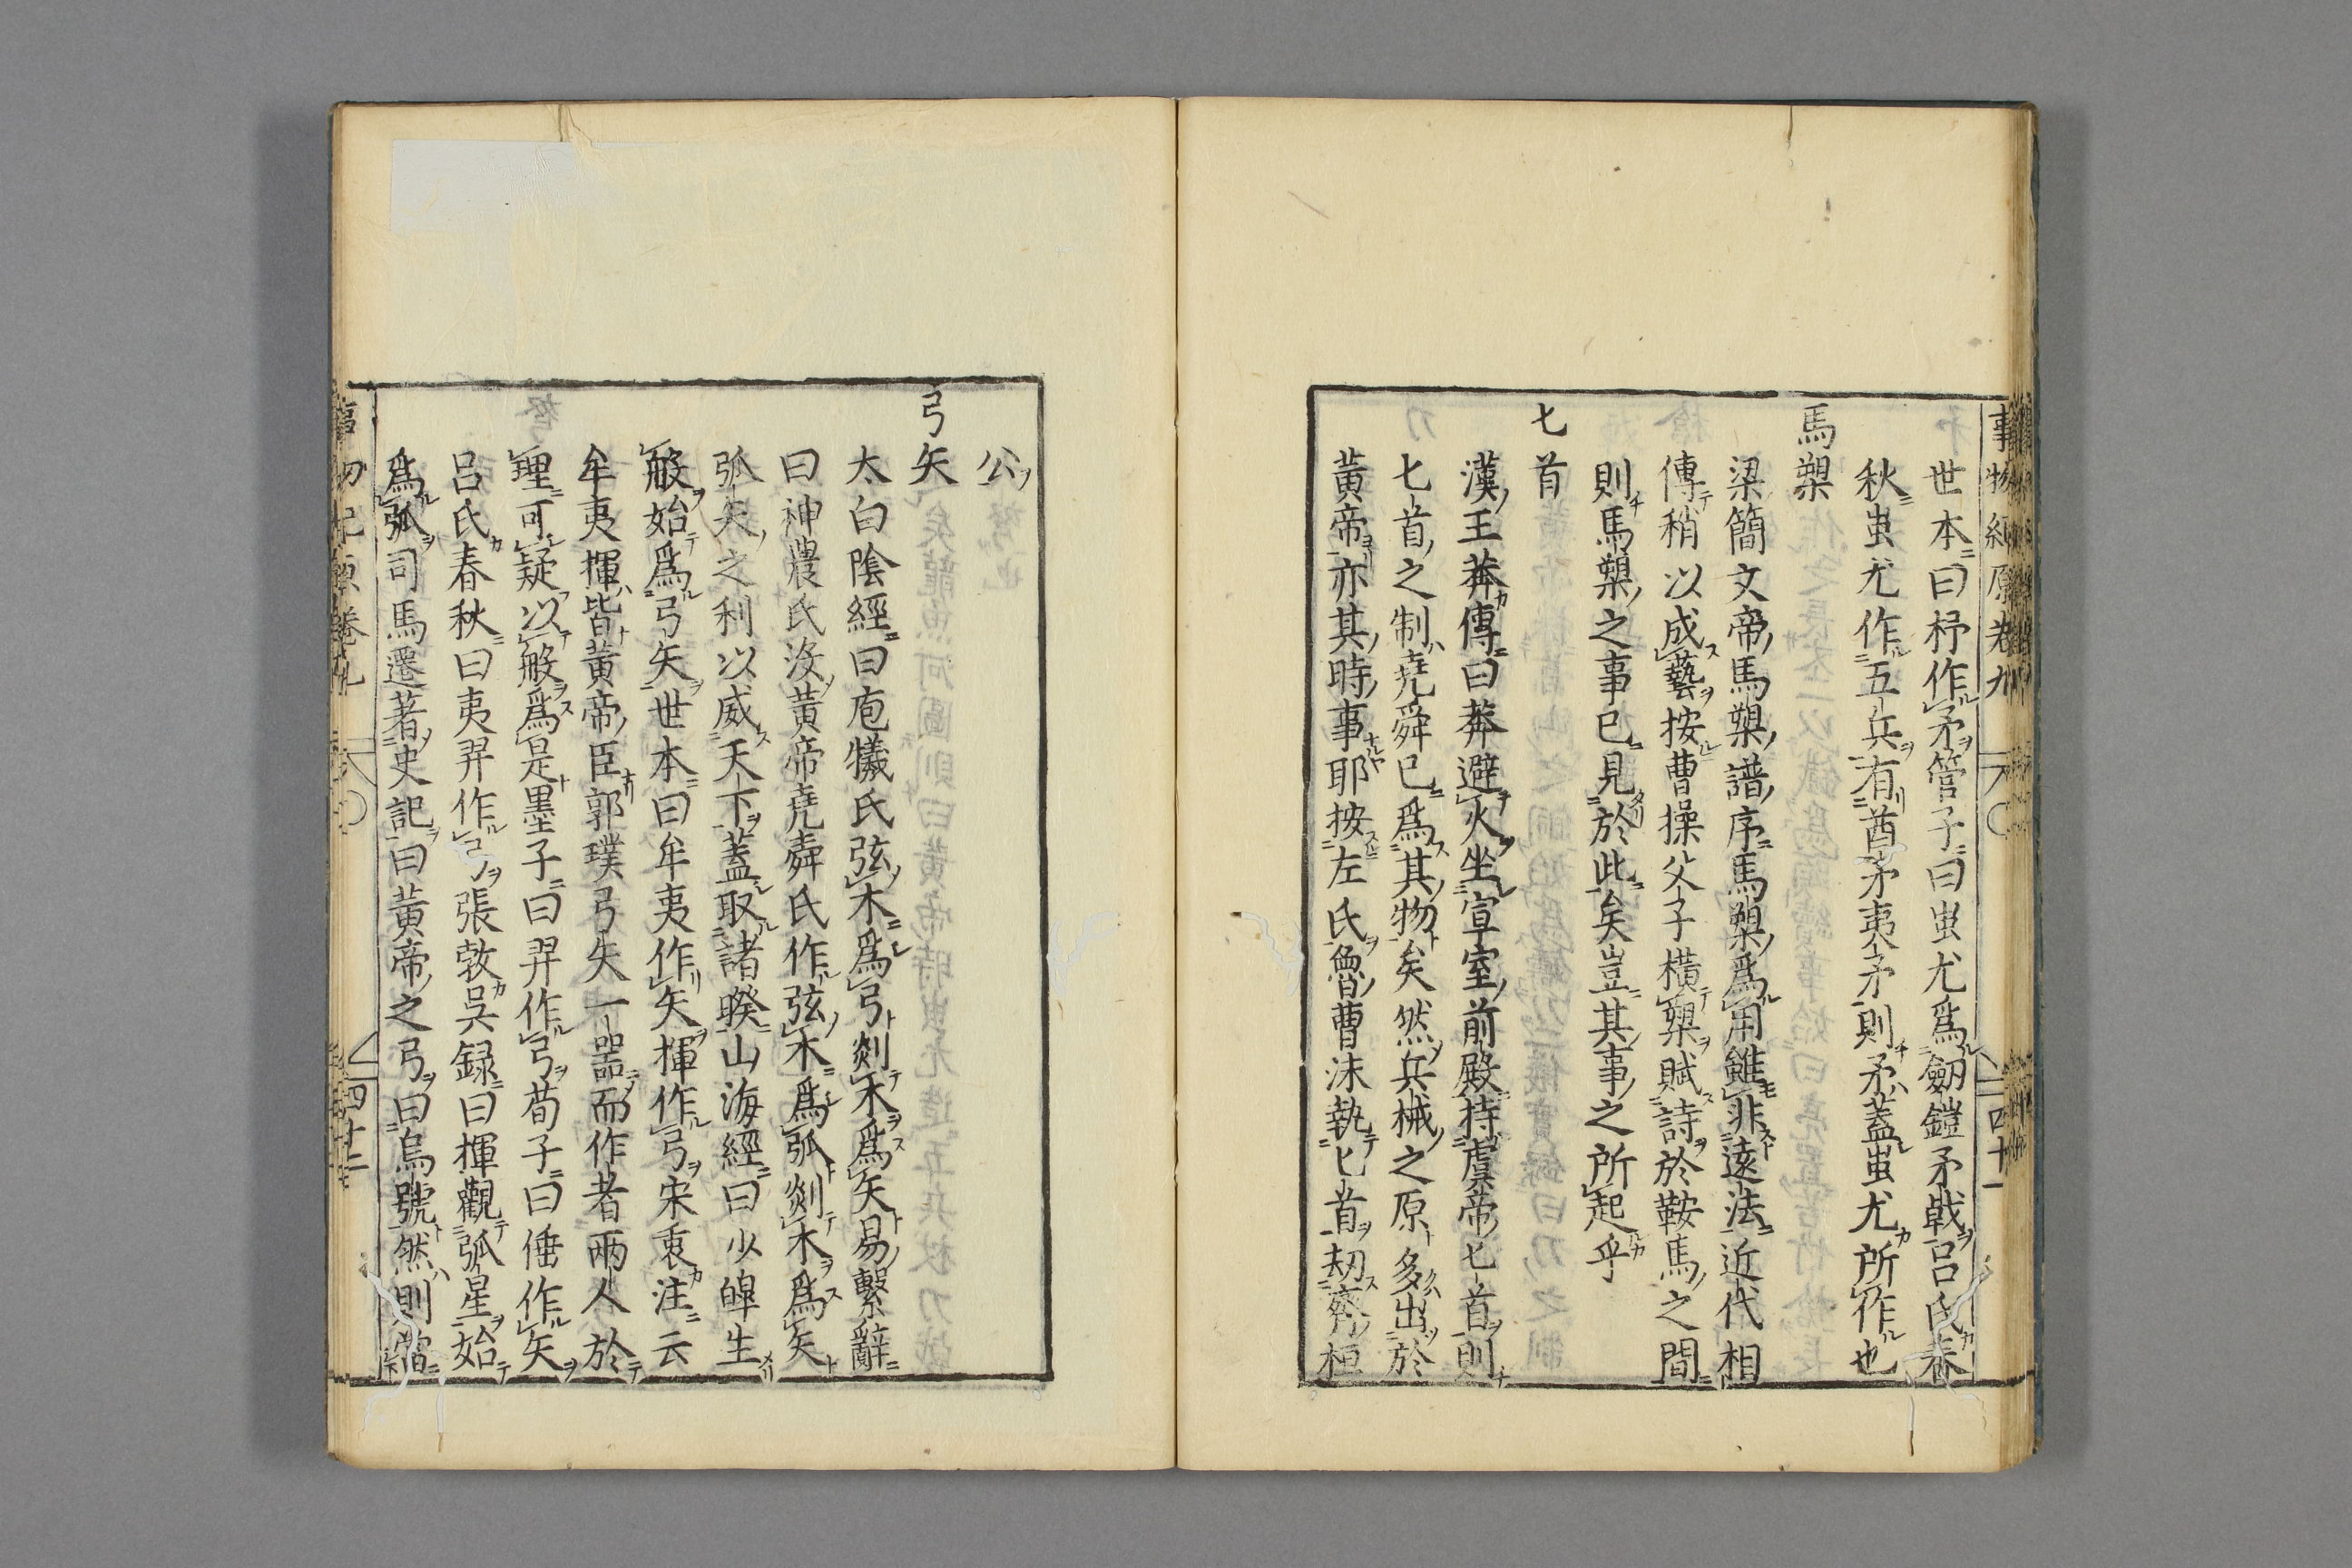 事物紀原卷九
四十一
世本曰杼作矛管子曰蚩尤爲劒鎧矛戟吕氏春
秋蚩尤作五兵有酋矛夷矛則矛蓋蚩尤所作也
馬槊
梁簡文帝馬槊譜序馬槊爲用雖非遠法近代相
傳稍以成藝按曹操父子橫槊賦詩於鞍馬之間
則馬槊之事已見於此矣豈其事之所起乎
匕首
漢王莽傳曰莽避火坐宣室前殿持虞帝匕首則
匕首之制堯舜已爲其物矣然兵械之原多出於
黃帝亦其時事耶按左氏魯曹沫執匕首刼齊桓
公
弓矢
太白陰經曰庖犧氏弦木爲弓剡木爲矢易繫辭
曰神農氏沒黃帝堯舜氏作弦木爲弧剡木爲矢
弧矢之利以威天下蓋取諸睽山海經曰少皞生
般始爲弓矢世本曰牟夷作矢揮作弓宋衷注云
牟夷揮皆黃帝臣郭璞弓矢一噐而作者兩人於
理可疑以般爲是墨子曰羿作弓荀子曰倕作矢
吕氏春秋曰夷羿作弓張敦吳録曰揮觀弧星始
爲弧司馬遷著史記曰黃帝之弓曰烏號然則當
卷九
四十二